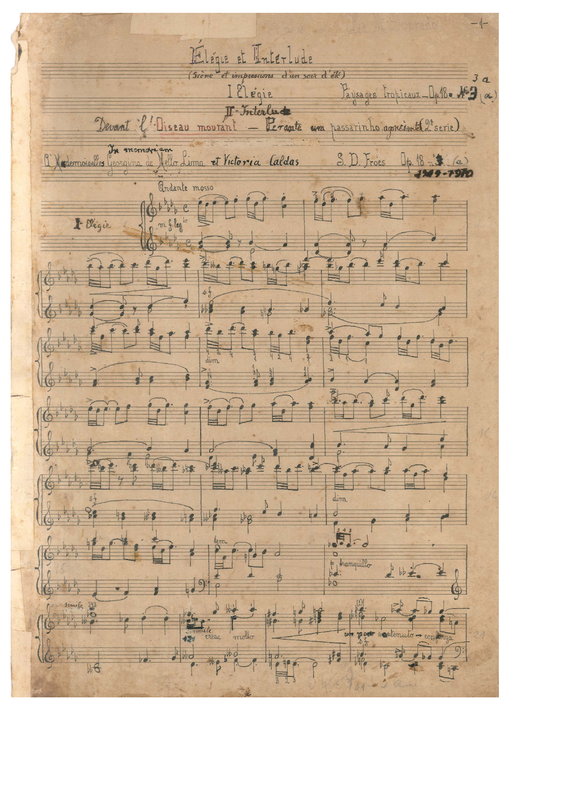 -1-
Élégie et Interlude
(Scène et impressions d'un soir d'été)
I Elégie
Paysages tropicaux - Op. 18 - Nº 3 (a)
3 a
II - Interlude
Devant l'Oiseau mourant - Perante um passarinho agonisante (2ª serie)
In memoriam
A Mesdemoiselles Georgina de Mello Lima et Victoria Caldas
S. D. Fróes Op. 18 - 3 (a)
1909-1910
Andante mosso
I - Elégie
dim
dim
tranquillo
molto